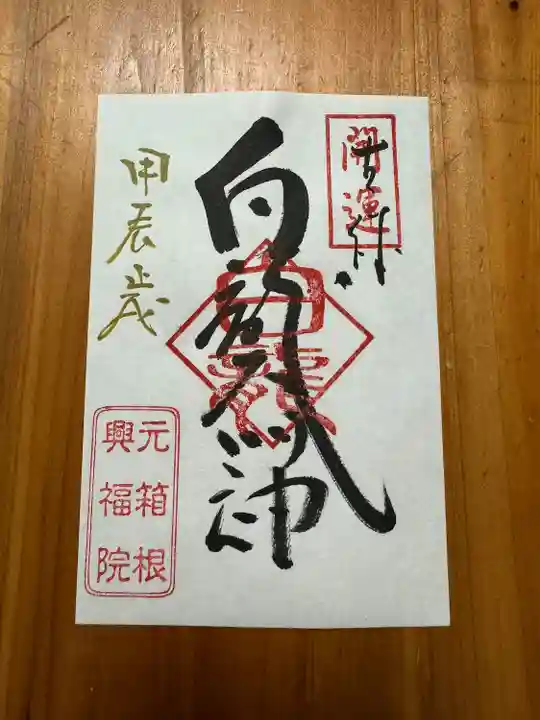 開運
白龍神
甲辰歳
元箱根
興福院